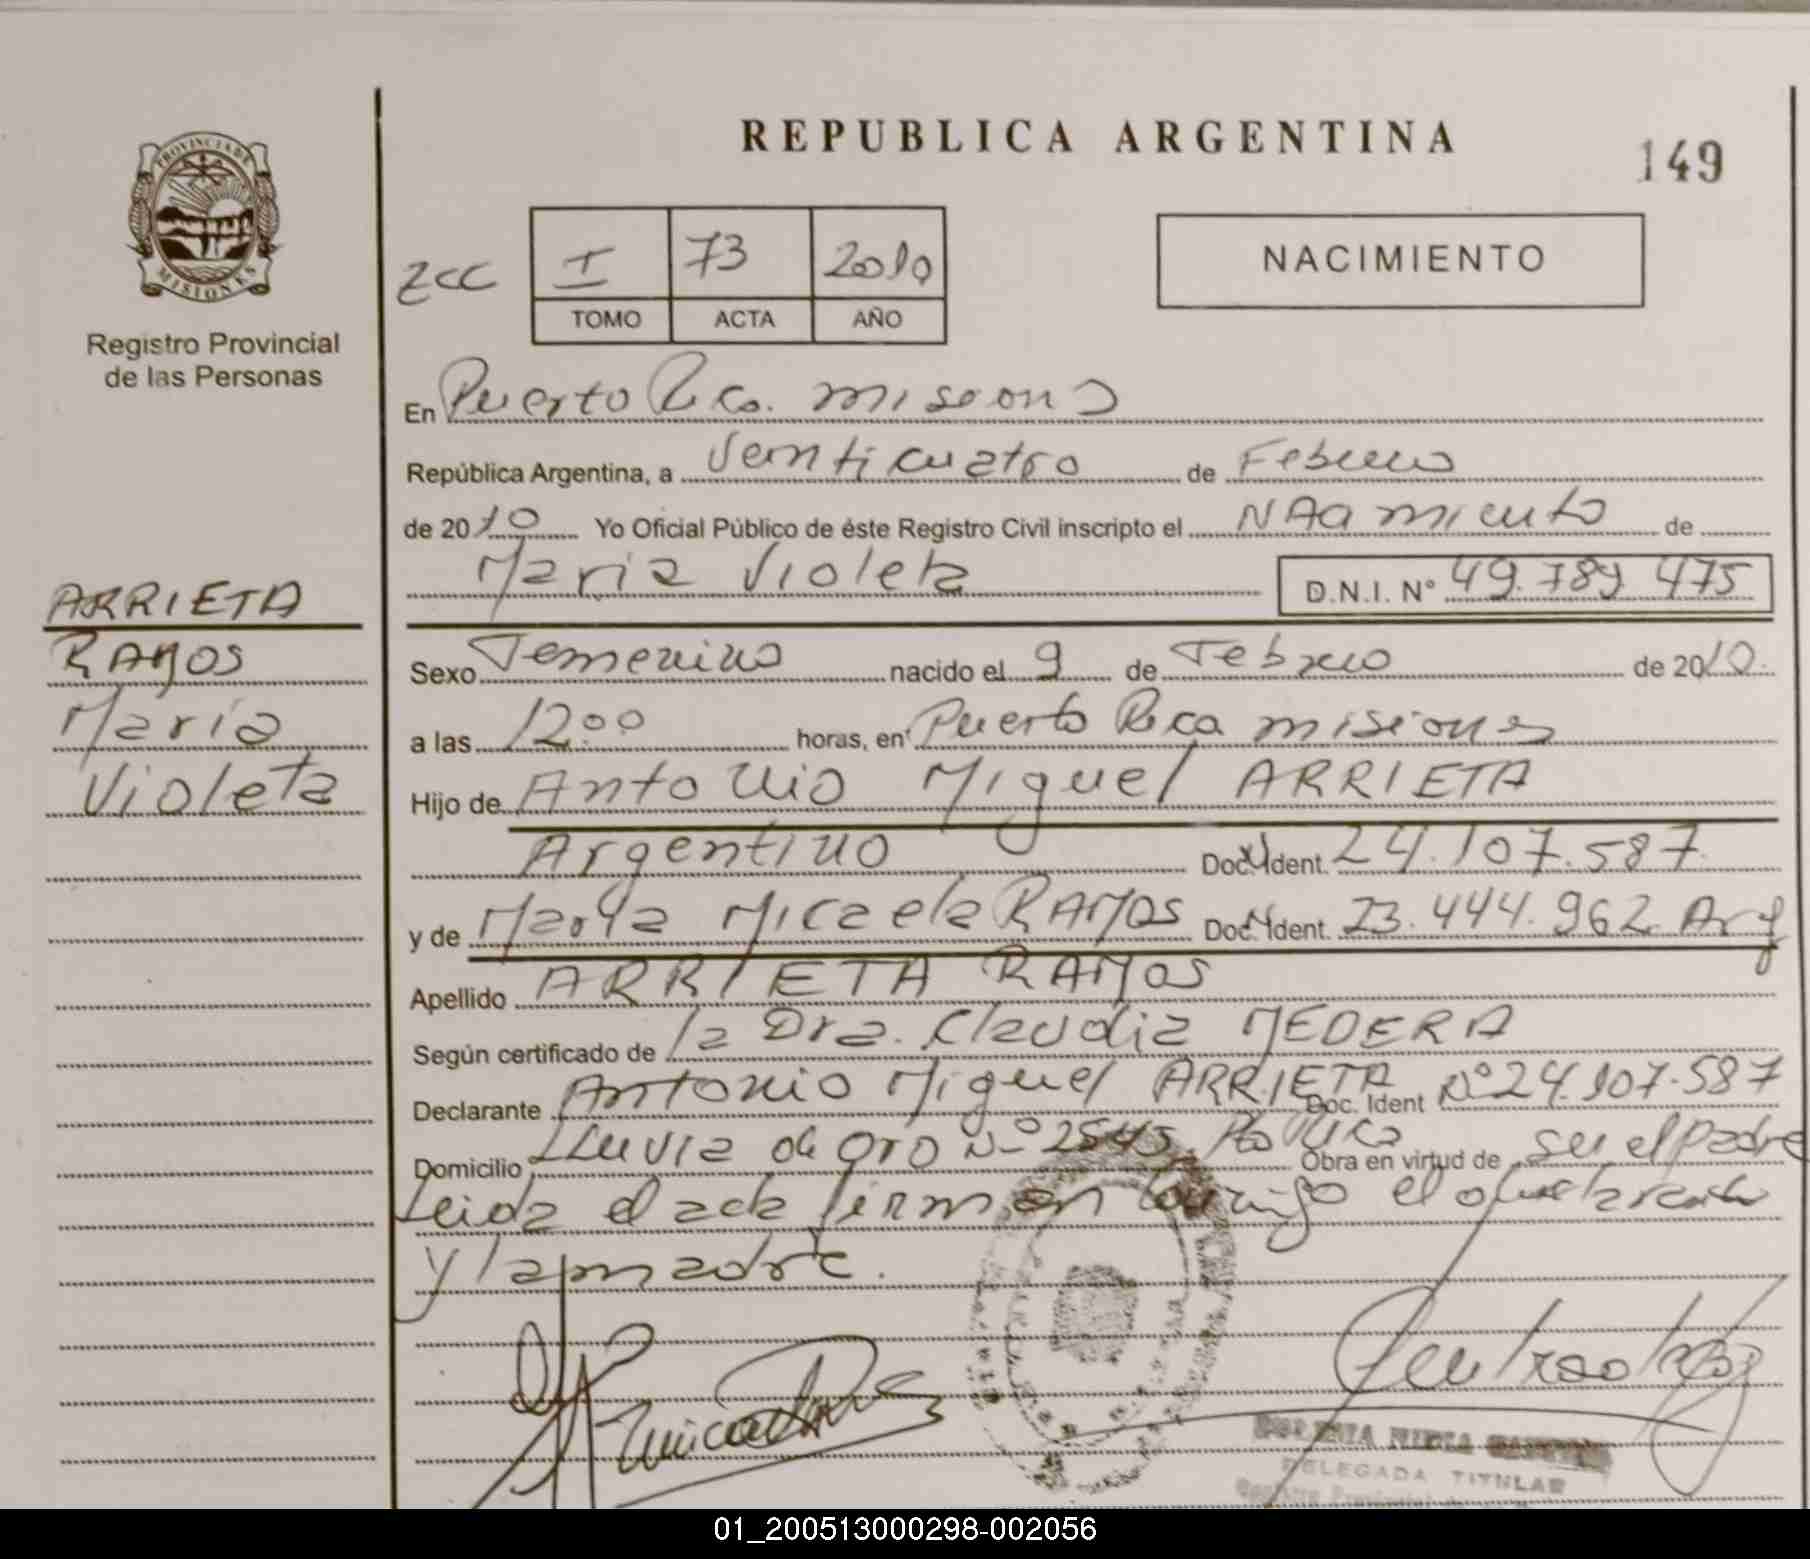 PROVINCIA DE
MISIONES
Registro Provincial
de las Personas
ARRIETA
RAMOS
María
Violeta
REPUBLICA ARGENTINA
149
NACIMIENTO
ZCC I 73 2010
TOMO ACTA AÑO
En Puerto Rico. misiones
República Argentina, a Veinticuatro de Febrero
de 2010 Yo Oficial Público de éste Registro Civil inscripto el Nacimiento de
Maria Violeta D.N.I. Nº 49.789 475
Sexo Femenino nacido el 9 de Febrero de 2010.
a las 12°° horas, en Puerto Rico misiones
Hijo de Antonio Miguel ARRIETA
Argentino Doc. Ident. 24.107.587.
y de Micaela RAMOS Doc. Ident. 23.444.962 Arg
Apellido ARRIETA RAMOS
Según certificado de la Dra. Claudia MEDERA
Declarante Antonio Miguel ARRIETA Doc. Ident Nº 24.107.587
Domicilio Lluvia de Oro Nº 2545, Pto Rico Obra en virtud de ser el padre
Leida el acta firman conmigo el declarante
y la madre.
DELEGADA TITULAR
Registro Provincial de
01_200513000298-002056